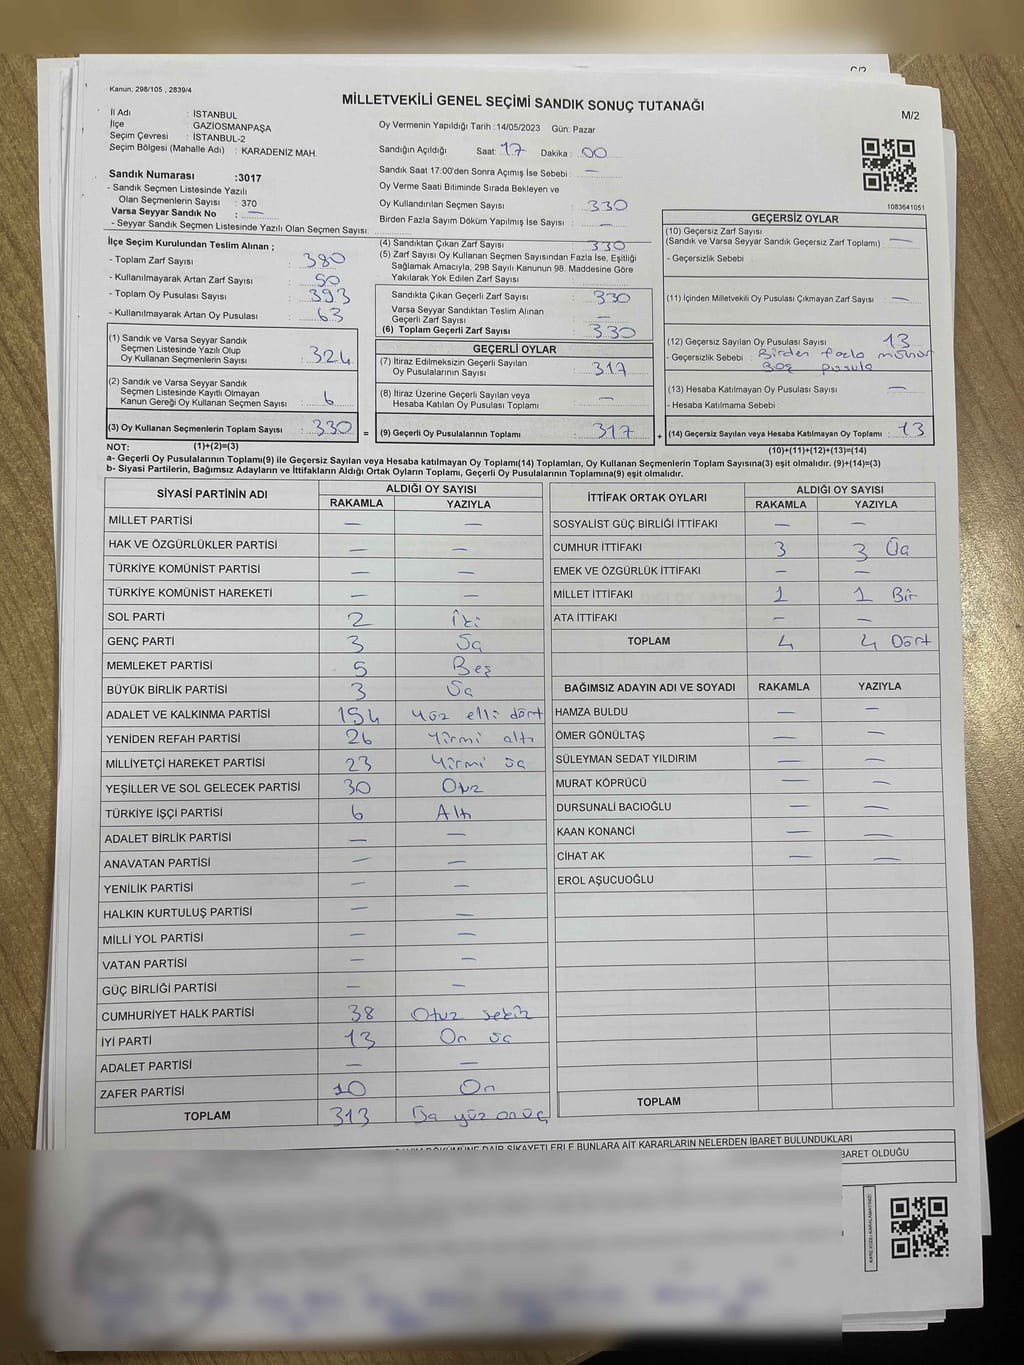 C/2
Kanun: 298/105 , 2839/4
MİLLETVEKİLİ GENEL SEÇİMİ SANDIK SONUÇ TUTANAĞI
M/2
İl Adı : İSTANBUL
İlçe : GAZİOSMANPAŞA
Seçim Çevresi : İSTANBUL-2
Seçim Bölgesi (Mahalle Adı) : KARADENİZ MAH.
Oy Vermenin Yapıldığı Tarih :14/05/2023 Gün: Pazar
Sandığın Açıldığı Saat: 17 Dakika : 00
Sandık Saat 17:00'den Sonra Açımış İse Sebebi : —
Oy Verme Saati Bitiminde Sırada Bekleyen ve
Oy Kullandırılan Seçmen Sayısı : 330
Birden Fazla Sayım Döküm Yapılmış İse Sayısı : —
1083641051
Sandık Numarası :3017
- Sandık Seçmen Listesinde Yazılı
Olan Seçmenlerin Sayısı : 370
Varsa Seyyar Sandık No : —
- Seyyar Sandık Seçmen Listesinde Yazılı Olan Seçmen Sayısı:
İlçe Seçim Kurulundan Teslim Alınan ;
- Toplam Zarf Sayısı : 380
- Kullanılmayarak Artan Zarf Sayısı : 50
- Toplam Oy Pusulası Sayısı : 393
- Kullanılmayarak Artan Oy Pusulası : 63
(1) Sandık ve Varsa Seyyar Sandık
Seçmen Listesinde Yazılı Olup
Oy Kullanan Seçmenlerin Sayısı : 324
(2) Sandık ve Varsa Seyyar Sandık
Seçmen Listesinde Kayıtlı Olmayan
Kanun Gereği Oy Kullanan Seçmen Sayısı : 6
(3) Oy Kullanan Seçmenlerin Toplam Sayısı : 330
(4) Sandıktan Çıkan Zarf Sayısı : 330
(5) Zarf Sayısı Oy Kullanan Seçmen Sayısından Fazla İse, Eşitliği
Sağlamak Amacıyla; 298 Sayılı Kanunun 98. Maddesine Göre
Yakılarak Yok Edilen Zarf Sayısı :
Sandıkta Çıkan Geçerli Zarf Sayısı : 330
Varsa Seyyar Sandıktan Teslim Alınan
Geçerli Zarf Sayısı : —
(6) Toplam Geçerli Zarf Sayısı : 330
GEÇERLİ OYLAR
(7) İtiraz Edilmeksizin Geçerli Sayılan
Oy Pusulalarının Sayısı : 317
(8) İtiraz Üzerine Geçerli Sayılan veya
Hesaba Katılan Oy Pusulası Toplamı : —
= (9) Geçerli Oy Pusulalarının Toplamı : 317
GEÇERSİZ OYLAR
(10) Geçersiz Zarf Sayısı
(Sandık ve Varsa Seyyar Sandık Geçersiz Zarf Toplamı) : —
- Geçersizlik Sebebi :
(11) İçinden Milletvekili Oy Pusulası Çıkmayan Zarf Sayısı : —
(12) Geçersiz Sayılan Oy Pusulası Sayısı : 13
- Geçersizlik Sebebi : Birden fazla mühür
Boş pusula
(13) Hesaba Katılmayan Oy Pusulası Sayısı : —
- Hesaba Katılmama Sebebi :
+ (14) Geçersiz Sayılan veya Hesaba Katılmayan Oy Toplamı : 13
NOT: (1)+(2)=(3)
(10)+(11)+(12)+(13)=(14)
a- Geçerli Oy Pusulalarının Toplamı(9) ile Geçersiz Sayılan veya Hesaba katılmayan Oy Toplamı(14) Toplamları, Oy Kullanan Seçmenlerin Toplam Sayısına(3) eşit olmalıdır. (9)+(14)=(3)
b- Siyasi Partilerin, Bağımsız Adayların ve İttifakların Aldığı Ortak Oyların Toplamı, Geçerli Oy Pusulalarının Toplamına(9) eşit olmalıdır.
SİYASİ PARTİNİN ADI ALDIĞI OY SAYISI
RAKAMLA YAZIYLA
MİLLET PARTİSİ — —
HAK VE ÖZGÜRLÜKLER PARTİSİ — —
TÜRKİYE KOMÜNİST PARTİSİ — —
TÜRKİYE KOMÜNİST HAREKETİ — —
SOL PARTİ 2 İki
GENÇ PARTİ 3 Üç
MEMLEKET PARTİSİ 5 Beş
BÜYÜK BİRLİK PARTİSİ 3 Üç
ADALET VE KALKINMA PARTİSİ 154 Yüz elli dört
YENİDEN REFAH PARTİSİ 26 Yirmi altı
MİLLİYETÇİ HAREKET PARTİSİ 23 Yirmi üç
YEŞİLLER VE SOL GELECEK PARTİSİ 30 Otuz
TÜRKİYE İŞÇİ PARTİSİ 6 Altı
ADALET BİRLİK PARTİSİ — —
ANAVATAN PARTİSİ — —
YENİLİK PARTİSİ — —
HALKIN KURTULUŞ PARTİSİ — —
MİLLİ YOL PARTİSİ — —
VATAN PARTİSİ — —
GÜÇ BİRLİĞİ PARTİSİ — —
CUMHURİYET HALK PARTİSİ 38 Otuz sekiz
İYİ PARTİ 13 On üç
ADALET PARTİSİ — —
ZAFER PARTİSİ 10 On
TOPLAM 313 Üç yüz onüç
İTTİFAK ORTAK OYLARI ALDIĞI OY SAYISI
RAKAMLA YAZIYLA
SOSYALİST GÜÇ BİRLİĞİ İTTİFAKI — —
CUMHUR İTTİFAKI 3 3 Üç
EMEK VE ÖZGÜRLÜK İTTİFAKI — —
MİLLET İTTİFAKI 1 1 Bir
ATA İTTİFAKI — —
TOPLAM 4 4 Dört
BAĞIMSIZ ADAYIN ADI VE SOYADI RAKAMLA YAZIYLA
HAMZA BULDU — —
ÖMER GÖNÜLTAŞ — —
SÜLEYMAN SEDAT YILDIRIM — —
MURAT KÖPRÜCÜ — —
DURSUNALİ BACIOĞLU — —
KAAN KONANCİ — —
CİHAT AK — —
EROL AŞUCUOĞLU
TOPLAM
DÖKÜMÜNE DAİR ŞİKAYETLERLE BUNLARA AİT KARARLARIN NELERDEN İBARET BULUNDUKLARI
İBARET OLDUĞU